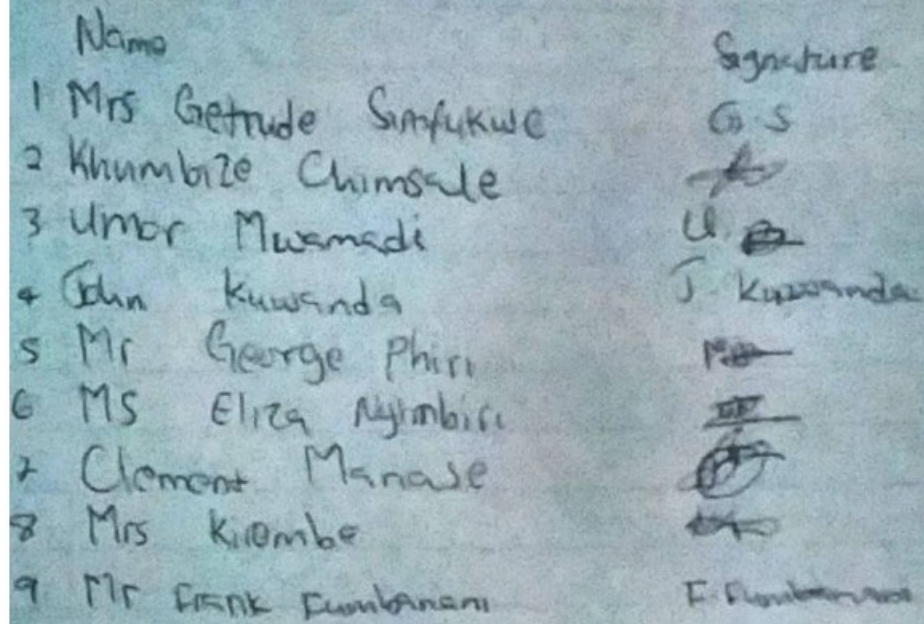 Name Signature
1 Mrs Getrude Simfukwe G.S
2 Khumbize Chimsale
3 Umar Mwamadi U.
4 John Kuwanda J. Kuwanda
5 Mr George Phiri
6 MS Eliza Nyimbiri
7 Clement Manase
8 Mrs Kirombe
9 Mr Frank Fumbanani F. Fumbanani